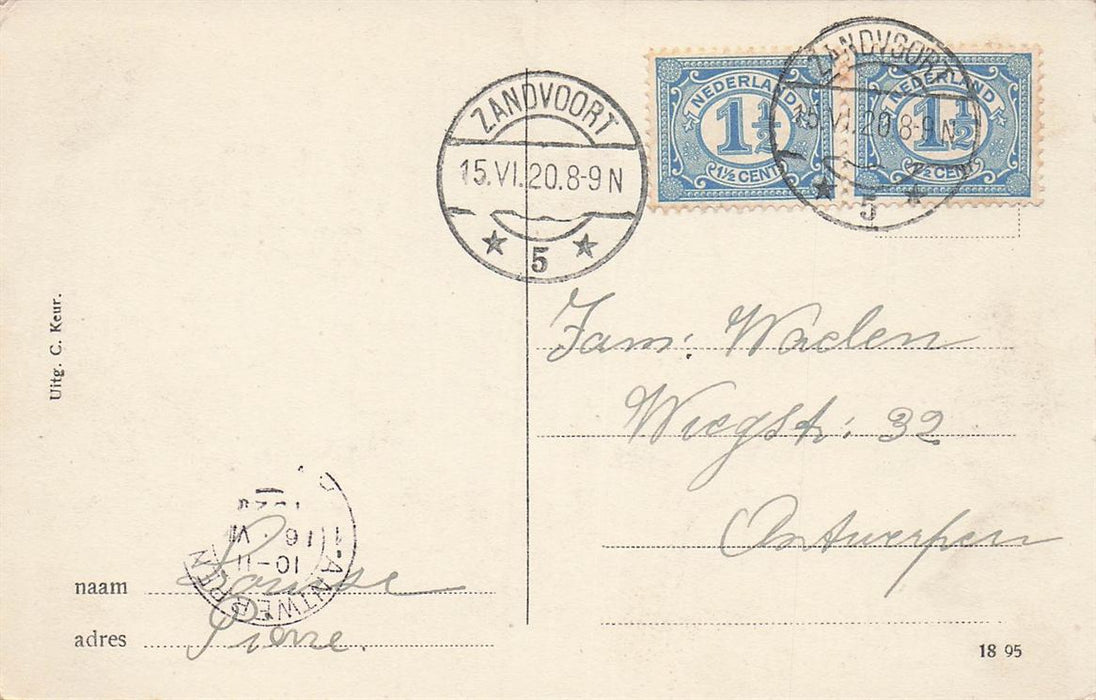 ZANDVOORT
15.VI.20.8-9 N
5
NEDERLAND
1½
1½ CENT
ZANDVOORT
15.VI.20 8-9 N
5
NEDERLAND
1½
1½ CENT
Uitg. C. Keur.
Fam: Waelen
Wiegstr: 32
Antwerpen
ANTWERPEN
10-11
16 VI
naam Louise
adres Pierre.
18 95